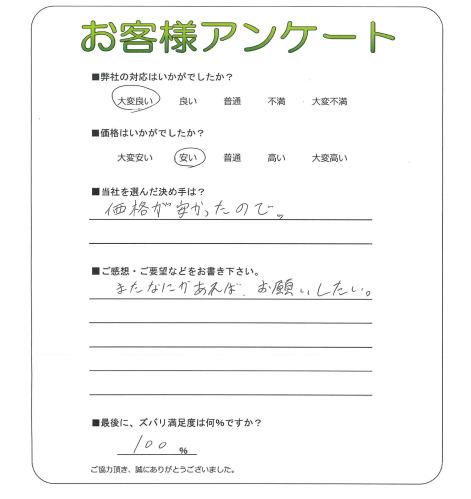 お客様アンケート
■弊社の対応はいかがでしたか?
大変良い 良い 普通 不満 大変不満
■価格はいかがでしたか?
大変安い 安い 普通 高い 大変高い
■当社を選んだ決め手は?
価格が安かったので。
■ご感想・ご要望などをお書き下さい。
またなにかあれば、お願いしたい。
■最後に、ズバリ満足度は何%ですか?
100 %
ご協力頂き、誠にありがとうございました。